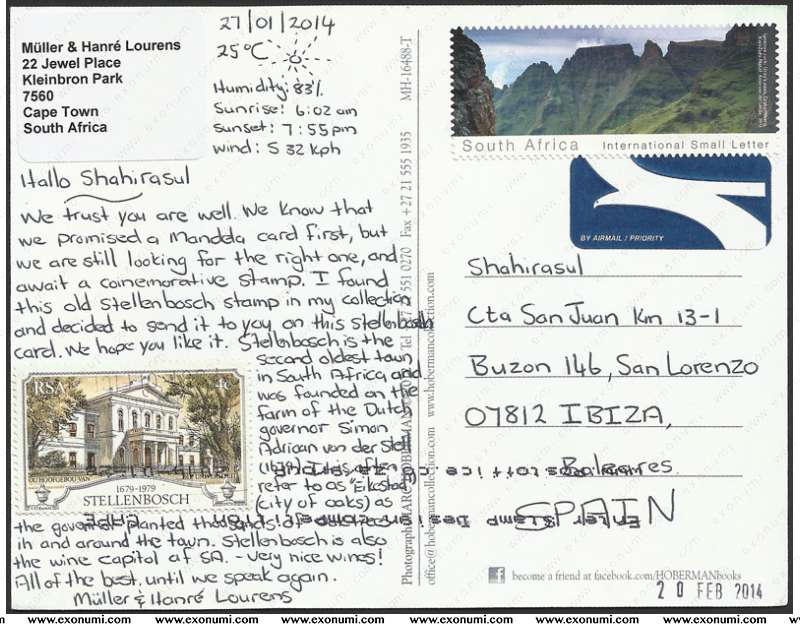 Müller & Hanré Lourens
22 Jewel Place
Kleinbron Park
7560
Cape Town
South Africa
27/01/2014
25°C
Humidity: 83%
Sunrise: 6:02 am
Sunset: 7:55pm
Wind: S 32 Kph
Hallo Shahirasul
We trust you are well. We know that
we promised a Mandela card first, but
we are still looking for the right one, and
await a coinemorative stamp. I found
this old Stellenbosch stamp in my collection
and decided to send it to you, on this Stellenbosch
card. We hope you like it. Stellenbosch is the
second oldest town
in South Africa and
was founded on the
farm of the Dutch
governor Simon
Adriaan van der Stel
(1679). It is often
refer to as "Eikestad"
(city of oaks) as
the governer planted thousands of oak trees
in and around the town. Stellenbosch is also
the wine capital of SA. - very nice wines!
All of the best, until we speak again.
Müller & Hanré Lourens
RSA 4c
OU HOOFGEBOU-VAN
1679-1979
STELLENBOSCH
MH-16488-T
Photographer MARC HOBERMAN Tel +27 21 551 0270 Fax +27 21 555 1935
office@hobermancollection.com www.hobermancollection.com
South Africa International Small Letter
BY AIRMAIL / PRIORITY
Shahirasul
Cta San Juan Km 13-1
Buzon 146, San Lorenzo
07812 IBIZA,
Baleares.
SPAIN
become a friend at facebook.com/HOBERMANbooks
20 FEB 2014
www.exonumi.com www.exonumi.com www.exonumi.com www.exonumi.com